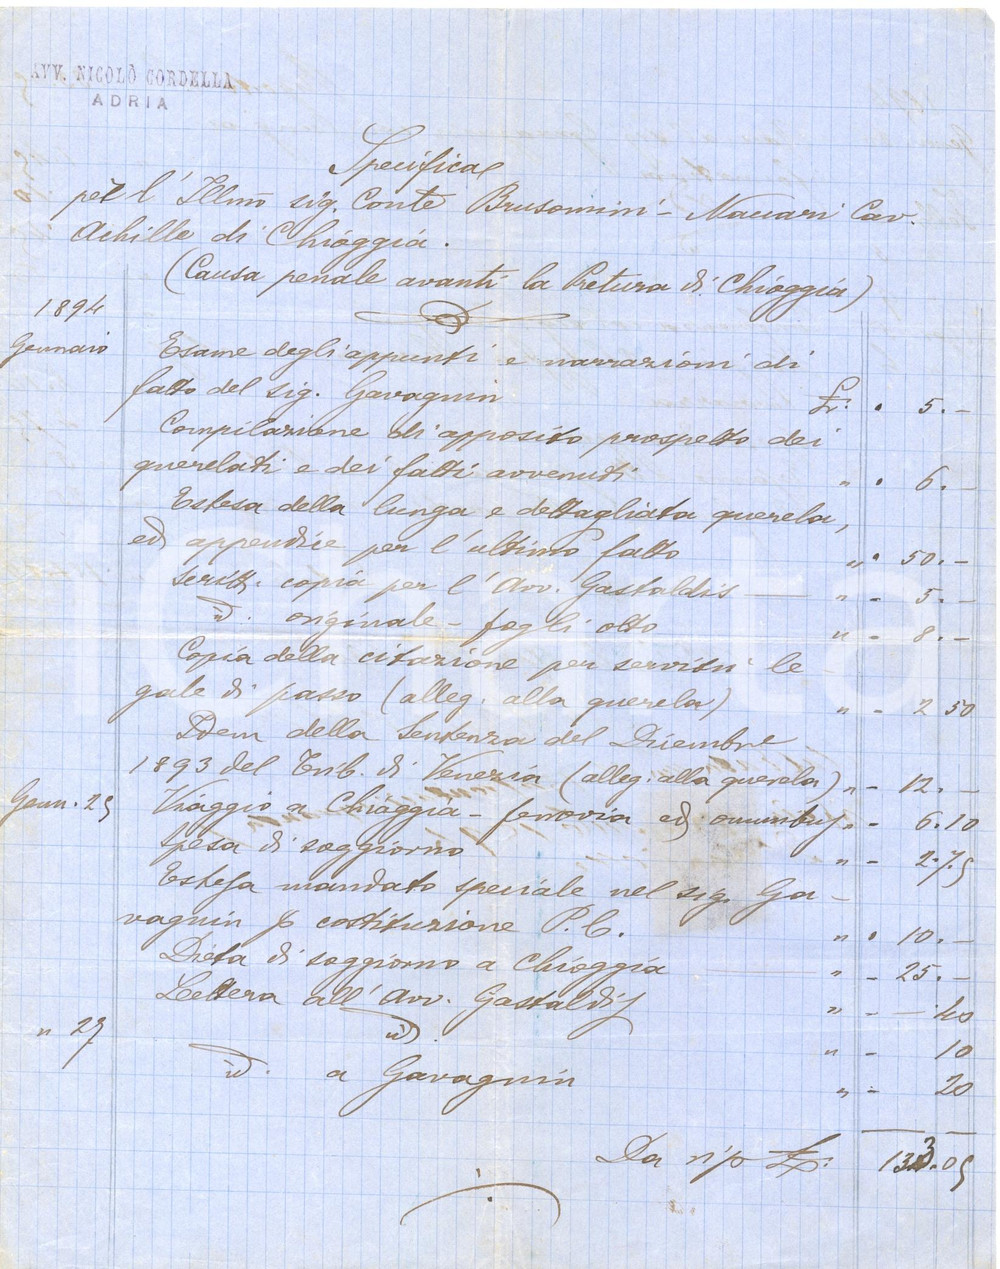 AVV. NICOLÒ CORDELLA
ADRIA
Specifica
per l'Illmo sig. Conte Brusomini-Naccari Cav.
Achille di Chioggia.
(Causa penale avanti la Pretura di Chioggia)
1894
Gennaio Esame degli appunti e narrazioni di
fatto del sig. Gavagnin £. . 5.-
Compilazione di apposito prospetto dei
querelati e dei fatti avvenuti " . 6.-
Estesa della lunga e dettagliata querela,
ed appendice per l'ultimo fatto " . 50.-
Scritt. copia per l'Avv. Gastaldis — " - 5.-
id. originale - fogli otto " - 8.-
Copia della citazione per servitù le
gale di passo (alleg. alla querela) " - 2 50
Idem della Sentenza del Dicembre
1893 del Trib. di Venezia (alleg. alla querela) " - 12.-
Genn. 25 Viaggio a Chioggia - ferrovia ed omnibus " - 6.10
Spesa di soggiorno " - 2.75
Estesa mandato speciale nel sig. Ga-
vagnin p costituzione P.C. " . 10.-
Dieta di soggiorno a Chioggia — " - 25.-
Lettera all'Avv. Gastaldis " - - 40
" 27 id. " - 10
id. a Gavagnin " - 20
Da rip £. 133.05
icharta